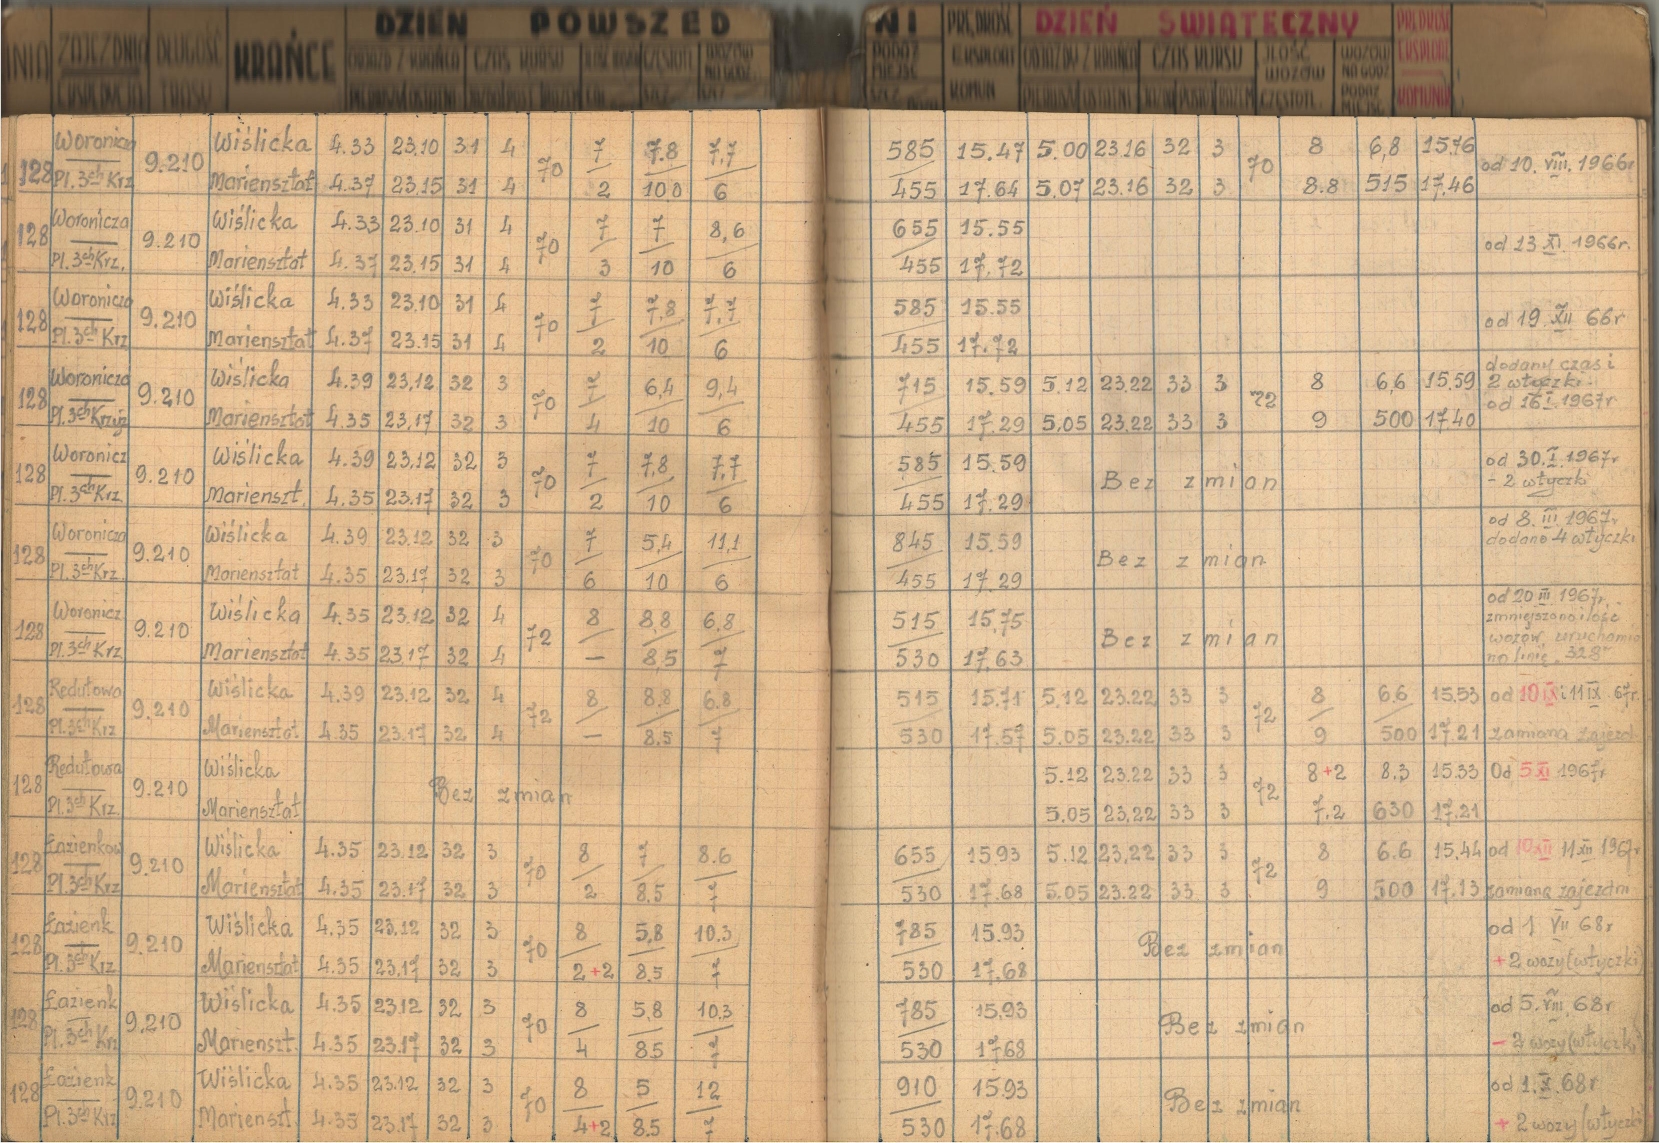 DZIEŃ POWSZED NI PRĘDKOŚĆ DZIEŃ ŚWIĄTECZNY PRĘDKOŚĆ
ZAJEZDNIA DŁUGOŚĆ KRAŃCE CZAS KURSU CZAS KURSU ILOŚĆ WOZÓW
EKSPEDYCJA TRASY
128 Woronicza 9.210 Wiślicka 4.33 23.10 31 4 70 7 7.8 7,7 585 15.47 5.00 23.16 32 3 70 8 6,8 15.76 od 10. VIII. 1966r
Pl. 3ch Krz Mariensztat 4.37 23.15 31 4 2 10,0 6 455 17.64 5.07 23.16 32 3 8.8 515 17,46
128 Woronicza 9.210 Wiślicka 4.33 23.10 31 4 70 7 7 8,6 655 15.55 od 13 XI. 1966r.
Pl. 3ch Krz, Mariensztat 4.37 23.15 31 4 3 10 6 455 17,72
128 Woronicza 9.210 Wiślicka 4.33 23.10 31 4 70 7 7,8 7,7 585 15.55 od 19. XII 66r
Pl. 3ch Krz Mariensztat 4.37 23.15 31 4 2 10 6 455 17.72
128 Woronicza 9.210 Wiślicka 4.39 23,12 32 3 70 7 6,4 9,4 715 15.59 5.12 23,22 33 3 72 8 6,6 15,59 dodany czas i 2 wtyczki
Pl. 3ch Krzyż Mariensztat 4.35 23,17 32 3 4 10 6 455 17.29 5,05 23,22 33 3 9 500 17.40 od 16 I. 1967r
128 Woronicz 9.210 Wiślicka 4.39 23,12 32 3 70 7 7,8 7,7 585 15.59 Bez zmian od 30. I. 1967r
Pl. 3ch Krz. Marienszt. 4.35 23.17 32 3 2 10 6 455 17.29 - 2 wtyczki
128 Woronicza 9.210 Wiślicka 4.39 23.12 32 3 70 7 5,4 11,1 845 15.59 Bez zmian od 8. III 1967r
Pl. 3ch Krz. Mariensztat 4.35 23,17 32 3 6 10 6 455 17.29 dodano 4 wtyczki
128 Woronicz 9.210 Wiślicka 4.35 23.12 32 4 72 8 8,8 6,8 515 15,75 Bez zmian od 20 III 1967r, zmniejszono ilość
Pl. 3ch Krz Mariensztat 4.35 23.17 32 4 — 8,5 7 530 17,63 wozów, uruchomio no linię 328r
128 Redutowa 9,210 Wiślicka 4.39 23.12 32 4 72 8 8,8 6.8 515 15.71 5.12 23.22 33 3 72 8 6.6 15,53 od 10 IX i 11 IX 67r.
Pl. 3ch Krz Mariensztat 4.35 23.17 32 4 — 8.5 7 530 17.57 5.05 23.22 33 3 9 500 17.21 zamiana zajezd
128 Redutowa 9.210 Wiślicka Bez zmian 5.12 23.22 33 3 72 8+2 8,3 15.33 Od 5 XI 1967r
Pl. 3ch Krz. Mariensztat 5.05 23,22 33 3 7,2 630 17.21
128 Łazienkow 9.210 Wiślicka 4.35 23,12 32 3 70 8 7 8.6 655 15.93 5.12 23,22 33 3 72 8 6.6 15,44 od 10 XII 11 XII 1967r
Pl. 3ch Krz Mariensztat 4.35 23.17 32 3 2 8.5 7 530 17.68 5.05 23.22 33 3 9 500 17.13 zamiana zajezdni
128 Łazienk 9.210 Wiślicka 4.35 23,12 32 3 70 8 5,8 10.3 785 15.93 Bez zmian od 1 VII 68r
Pl. 3ch Krz Mariensztat 4.35 23.17 32 3 2+2 8.5 7 530 17.68 + 2 wozy (wtyczki)
128 Łazienk 9.210 Wiślicka 4.35 23.12 32 3 70 8 5,8 10,3 785 15.93 Bez zmian od 5. VIII. 68r
Pl. 3ch Krz Marienszt. 4.35 23.17 32 3 4 8.5 7 530 17.68 - 2 wozy (wtyczk
128 Łazienk 9.210 Wiślicka 4.35 23.12 32 3 70 8 5 12 910 15.93 Bez zmian od 1. X. 68r
Pl. 3ch Krz Marienszt. 4.35 23.17 32 3 4+2 8.5 7 530 17.68 + 2 wozy (wtyczki